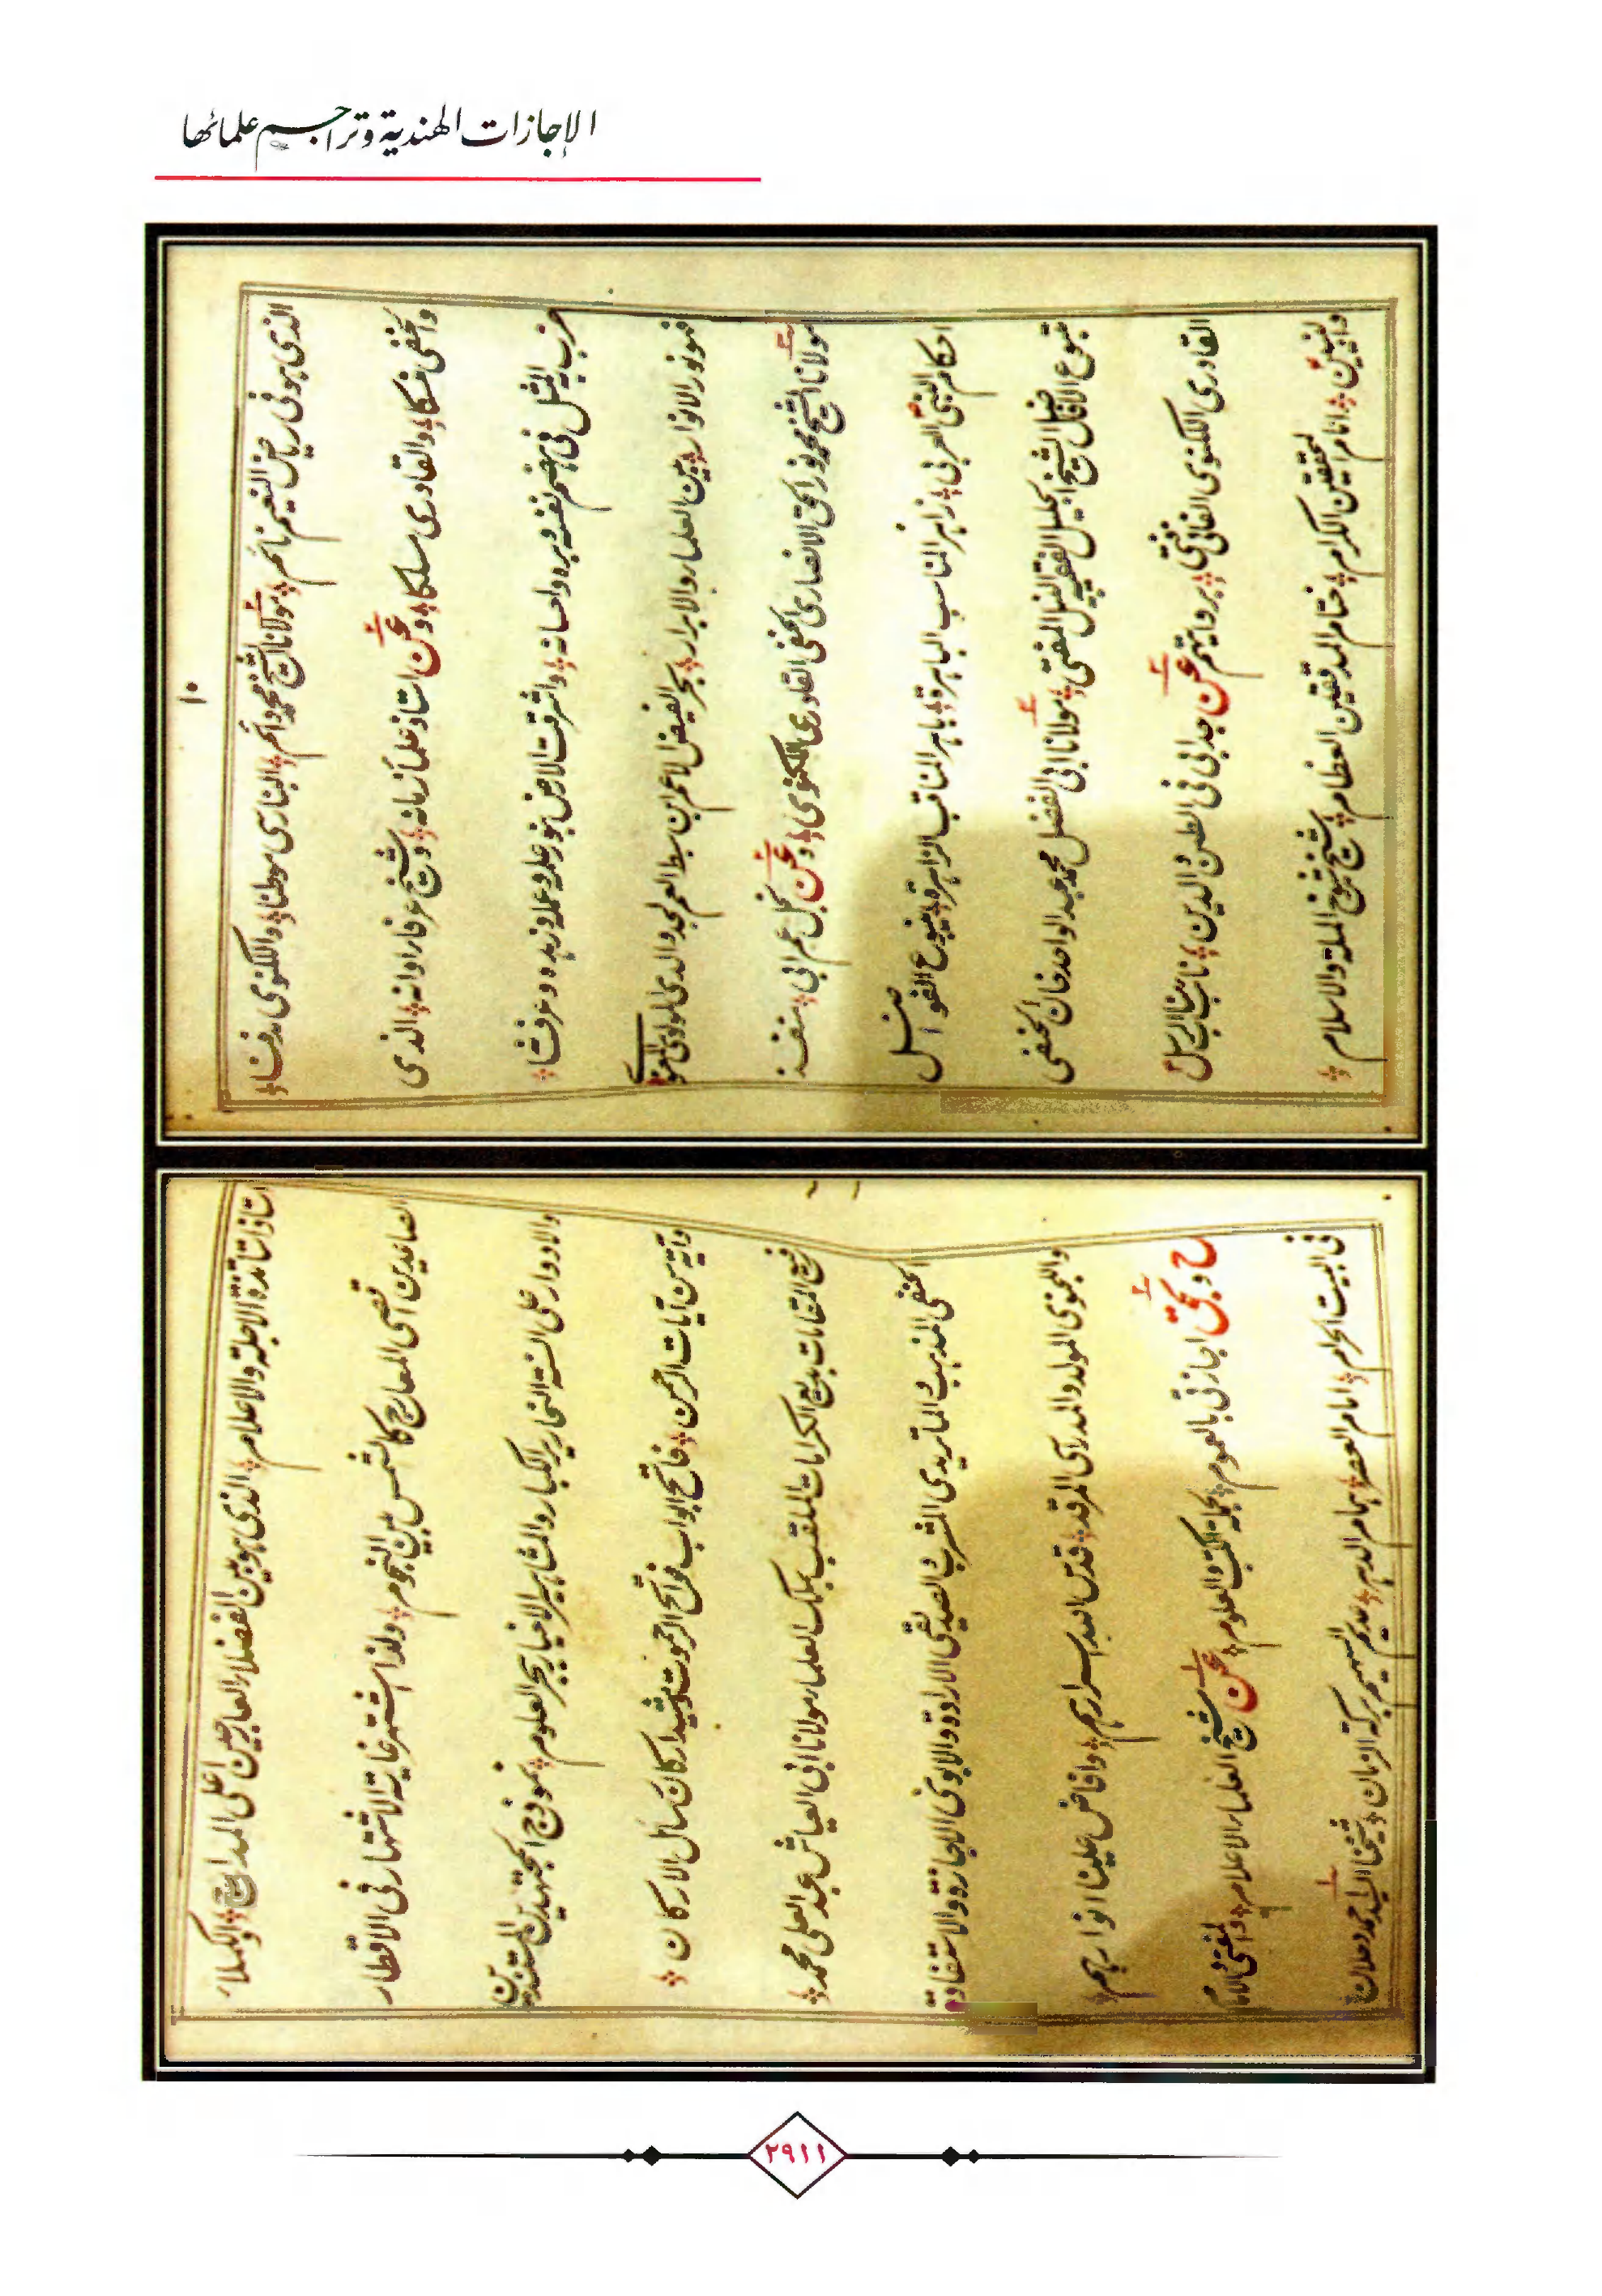 الإجازات الهندية وتراجم علمائها
١٠
الذى هو فى رياض النعيم نائم مولانا الشيخ محمد دائم البنارسى موطنا واللكنوى مدفنا
والحنفى منسكا والقادرى مسلكا وعن استاذ علماء زمانه وشيخ عرفاء اوانه الذى
ضرب به المثل فى هضم نفسه وبره واحسانه واشرقت الارض بنور علمه وعمله وزهده وعرفانه
فهو نور الانوار بين العلماء والابرار بحر الفيض الاعم ابن سبط العم لجد والدى المولوى المعنوى
مولانا الشيخ محمد نور الحق الانصارى الحنفى القادرى اللكنوى وعن نجل عم ابى منفذ
احكام النبى العربى زاهر المناسب الباهرة باهر المناقب الزاهرة منبوع الفواضل
متبوع الافاضل الشيخ الجليل الفقيه النبيل المفتى مولانا ابى الفضل محمد عبد الواحد خان الحنفى
القادرى اللكنوى بروايتهم عن جد ابى فى الطين والدين نائب الرسل
والنبيين امام المحققين الكرام ختام المدققين العظام شيخ شيوخ الملة والاسلام
استاذ اساتذة الاجلة والاعلام الذى هو بين الفضلاء العارجين اعلى المدارج والكملاء
الصاعدين اقصى المعارج كالشمس بين النجوم ولذا اشتهر غاية الاشتهار فى الاقطار
والادوار على السنة النحارير الكبار والمشاهير الاخيار ببحر العلوم نموذج المجتهدين المستندين
وآية من آيات الرحمن فاتح ابواب فواتح الرحموت ومشيد اركان رسائل الاركان
رفيع المقامات بديع الكرامات الملقب بملك العلماء مولانا ابى العياش عبد العلى محمد
الحنفى المذهب والماتريدى المشرب والصديقى الارادة والابوى الاجازة والاستفادة
واللكنوى المولد والمدراسى المرقد قدس الله اسرارهم وافاض علينا انوارهم
ح وبحق اجازتى بالعموم بجملة الكتب والعلوم عن شيخ العلماء الاعلام والمفتى والامام
فى البيت الحرام امام العصر همام الدهر عديم السهيم بركة الزمان شيخنا السيد احمد دحلان
٢٩١١